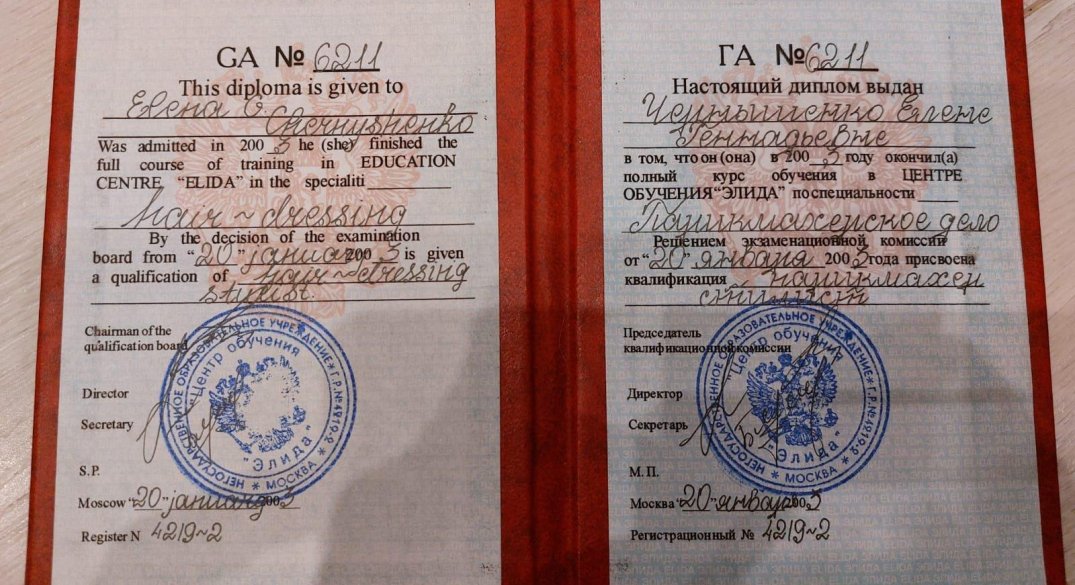 GA № 6211
This diploma is given to
Elena G.
Chernyshenko
Was admitted in 2003 he (she) finished the
full course of training in EDUCATION
CENTRE "ELIDA" in the specialiti
hair~dressing
By the decision of the examination
board from "20" januar 2003 is given
a qualification of hair~dressing
stylist.
Chairman of the
qualification board
Director
Secretary
S.P.
Moscow "20" january 2003
Register N 4219~2
НЕГОСУДАРСТВЕННОЕ ОБРАЗОВАТЕЛЬНОЕ УЧРЕЖДЕНИЕ * Г.Р.№4919-2 * МОСКВА *
"Центр обучения
"Элида"
ГА № 6211
Настоящий диплом выдан
Чернышенко Елене
Геннадьевне
в том, что он (она) в 2003 году окончил(а)
полный курс обучения в ЦЕНТРЕ
ОБУЧЕНИЯ "ЭЛИДА" по специальности
Парикмахерское дело
Решением экзаменационной комиссии
от "20" января 2003 года присвоена
квалификация парикмахер
стилист
Председатель
квалификационной комиссии
Директор
Секретарь
М. П.
Москва "20" января 2003
Регистрационный № 4219~2
НЕГОСУДАРСТВЕННОЕ ОБРАЗОВАТЕЛЬНОЕ УЧРЕЖДЕНИЕ * Г.Р.№4919-2 * МОСКВА *
"Центр обучения
"Элида"